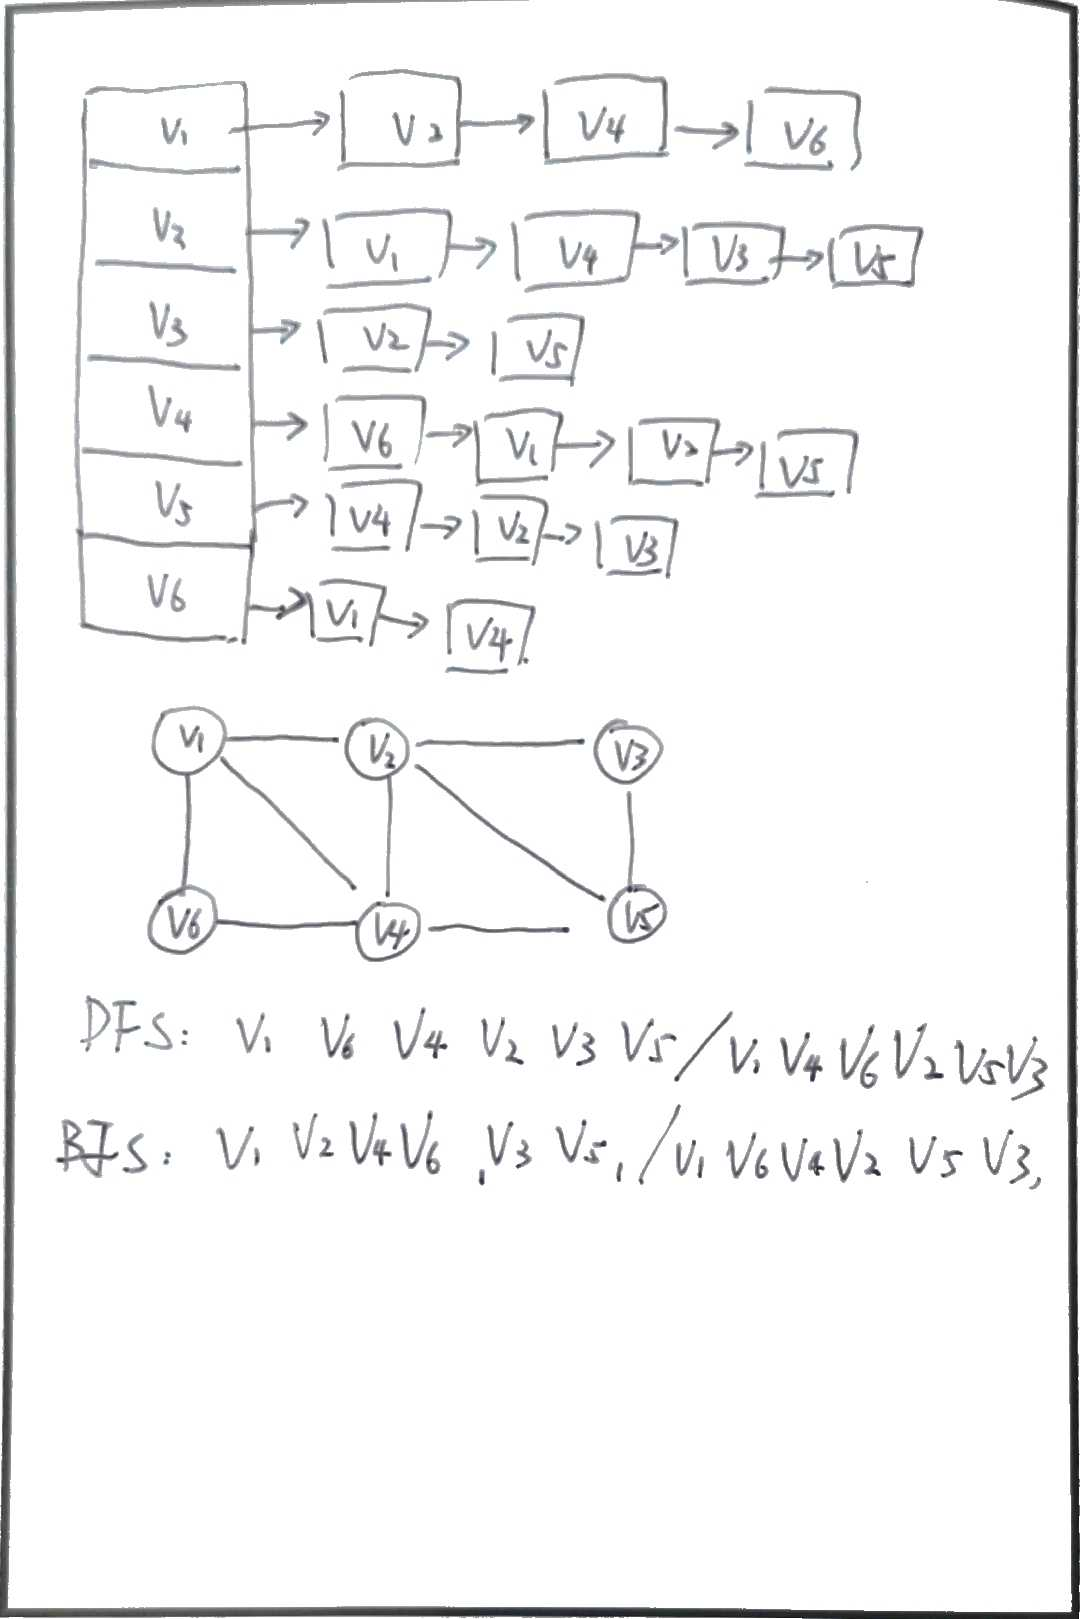 V1 → V2 → V4 → V6
V2 → V1 → V4 → V3 → V5
V3 → V2 → V5
V4 → V6 → V1 → V2 → V5
V5 → V4 → V2 → V3
V6 → V1 → V4
V1 V2 V3
V6 V4 V5
DFS: V1 V6 V4 V2 V3 V5 / V1 V4 V6 V2 V5 V3
BFS: V1 V2 V4 V6 , V3 V5 , / V1 V6 V4 V2 V5 V3,